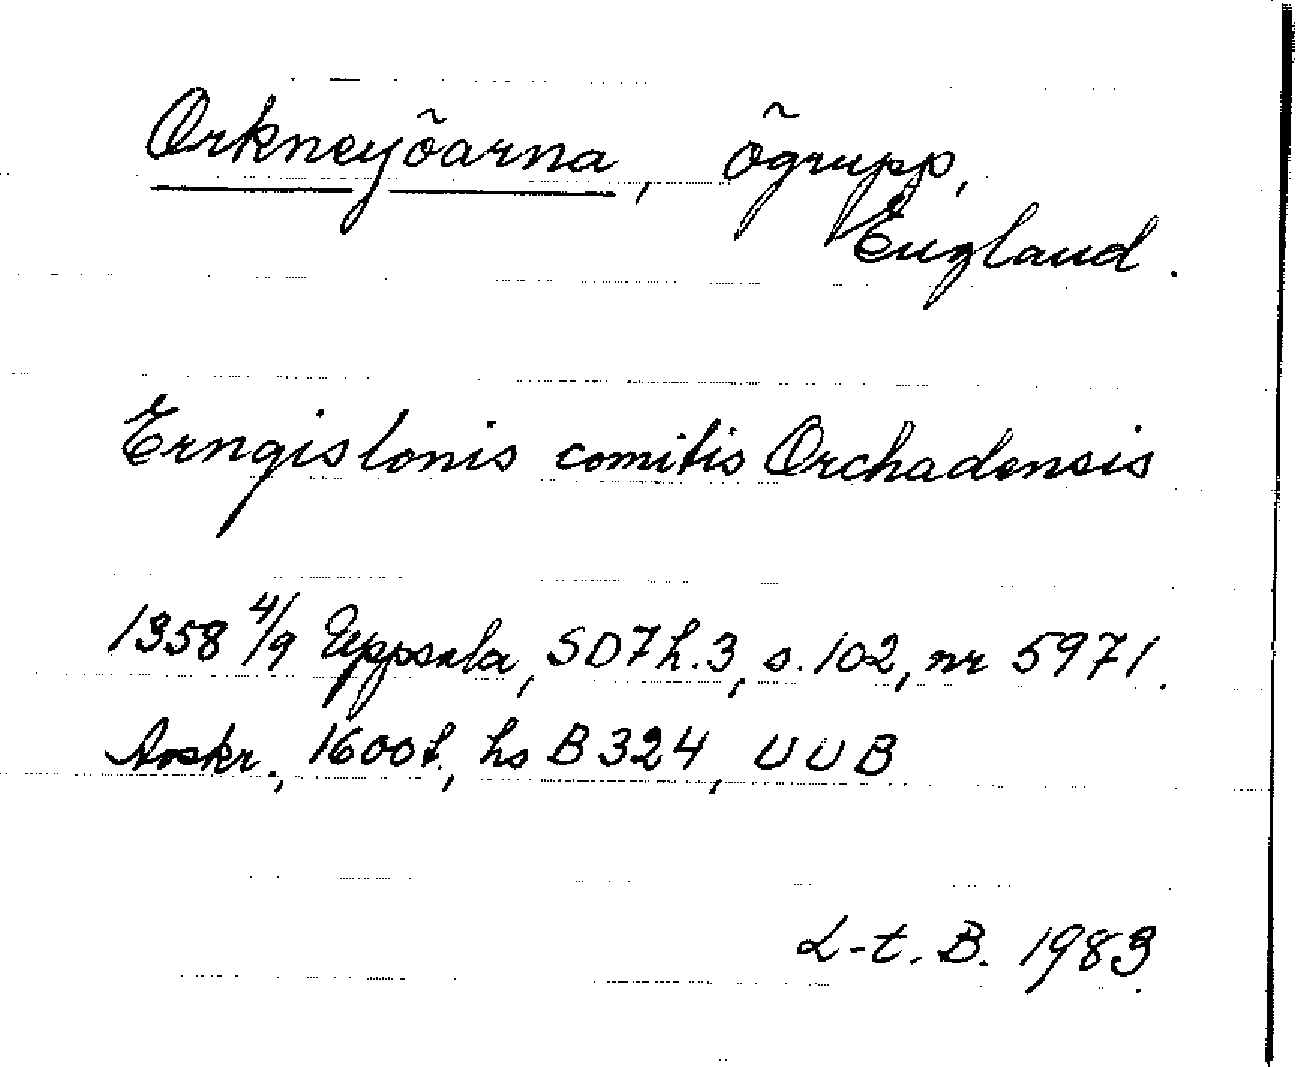 Orkneyöarna, ögrupp,
England.
Erngislonis comitis Orchadensis
1358 4/9 Uppsala, SD7h.3, s.102, nr 5971.
Avskr., 1600t., hs B 324, UUB
L-t. B. 1983.